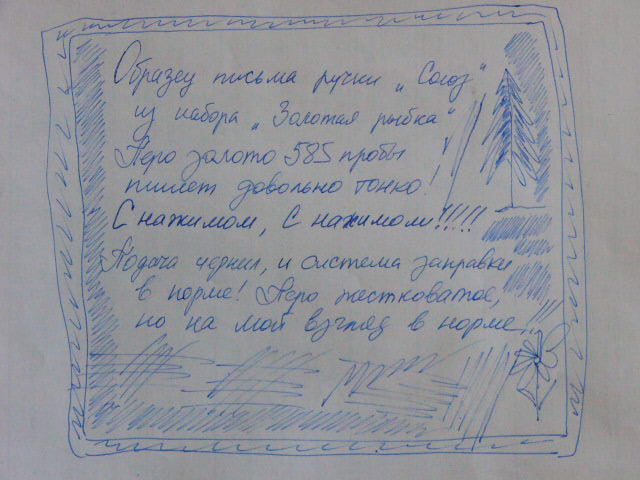 Образец письма ручки „Союз“
из набора „Золотая рыбка“
Перо золото 585 пробы
пишет довольно тонко!
С нажимом, С нажимом!!!!!
Подача чернил, и система заправки
в норме! Перо жестковатое,
но на мой взгляд в норме...